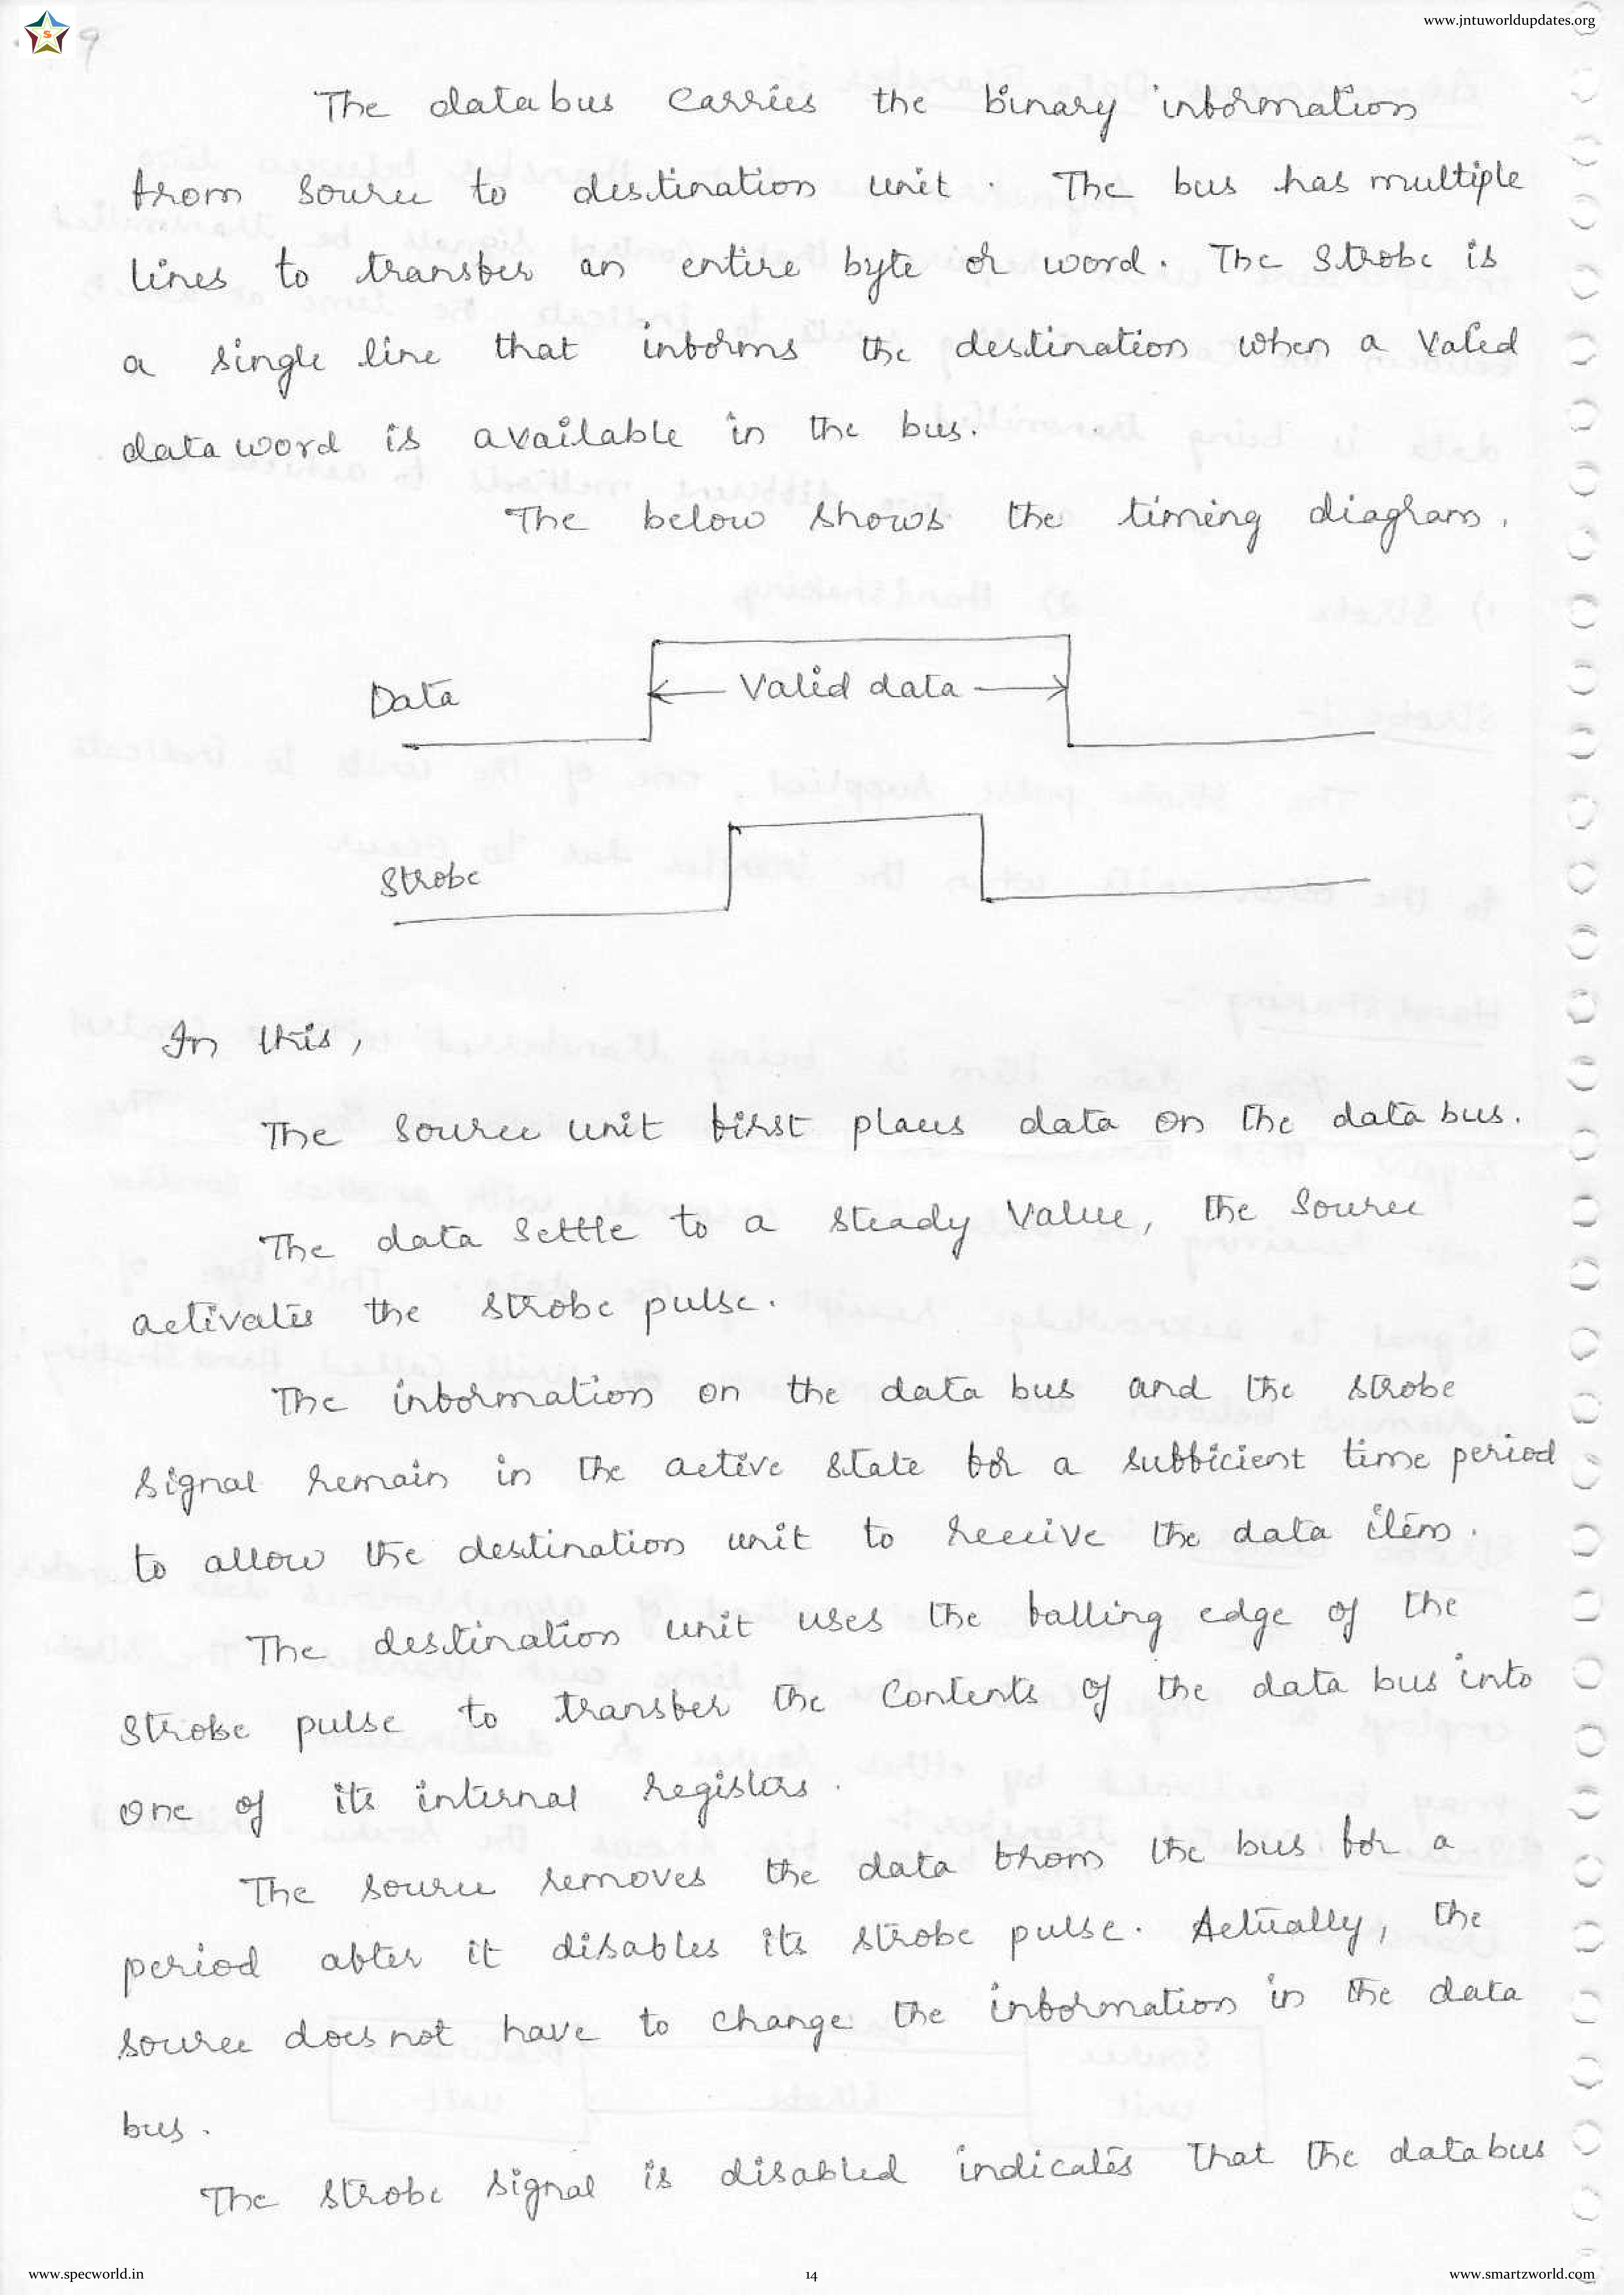 www.jntuworldupdates.org
S
9
The data bus carries the binary information
from source to destination unit. The bus has multiple
lines to transfer an entire byte or word. The Strobe is
a single line that informs the destination when a Valid
data word is available in the bus.
The below shows the timing diagram.
Data
Valid data
Strobe
In this,
The source unit first places data on the data bus.
The data settle to a steady Value, the source
activates the strobe pulse.
The information on the data bus and the strobe
signal remain in the active state for a sufficient time period
to allow the destination unit to receive the data item.
The destination unit uses the falling edge of the
strobe pulse to transfer the contents of the data bus into
one of its internal registers.
The source removes the data from the bus for a
period after it disables its strobe pulse. Actually, the
source does not have to change the information in the data
bus.
The strobe signal is disabled indicates that the data bus
www.specworld.in
14
www.smartzworld.com